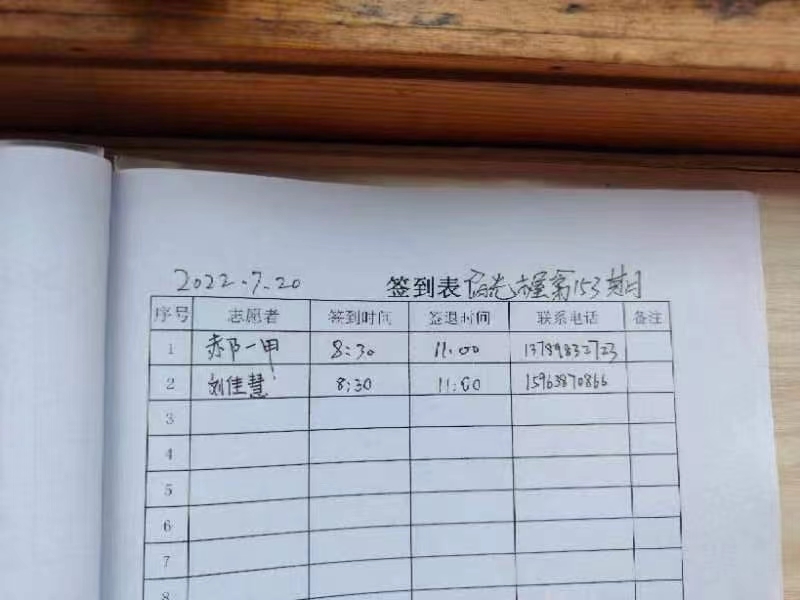 2022.7.20 签到表 第153期
序号 志愿者 签到时间 签退时间 联系电话 备注
1 郝一甲 8:30 11:00 13789832723
2 刘佳慧 8:30 11:00 15963870866
3
4
5
6
7
8